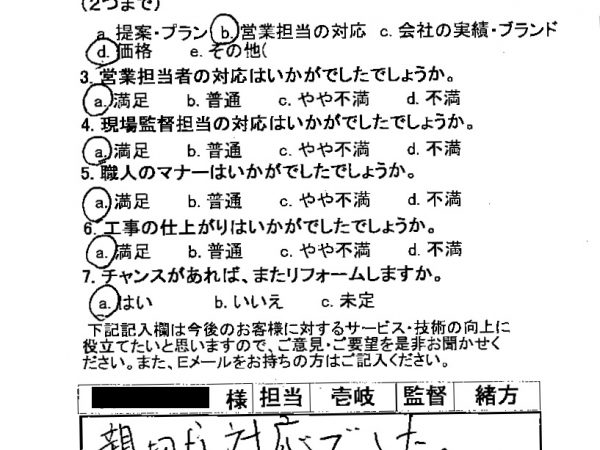 (2つまで)
a. 提案・プラン b. 営業担当の対応 c. 会社の実績・ブランド
d. 価格 e. その他(
3. 営業担当者の対応はいかがでしたでしょうか。
a. 満足 b. 普通 c. やや不満 d. 不満
4. 現場監督担当の対応はいかがでしたでしょうか。
a. 満足 b. 普通 c. やや不満 d. 不満
5. 職人のマナーはいかがでしたでしょうか。
a. 満足 b. 普通 c. やや不満 d. 不満
6. 工事の仕上がりはいかがでしたでしょうか。
a. 満足 b. 普通 c. やや不満 d. 不満
7. チャンスがあれば、またリフォームしますか。
a. はい b. いいえ c. 未定
下記記入欄は今後のお客様に対するサービス・技術の向上に
役立てたいと思いますので、ご意見・ご要望を是非お聞かせく
ださい。また、Eメールをお持ちの方はご記入ください。
様 担当 壱岐 監督 緒方
親切な対応でした。